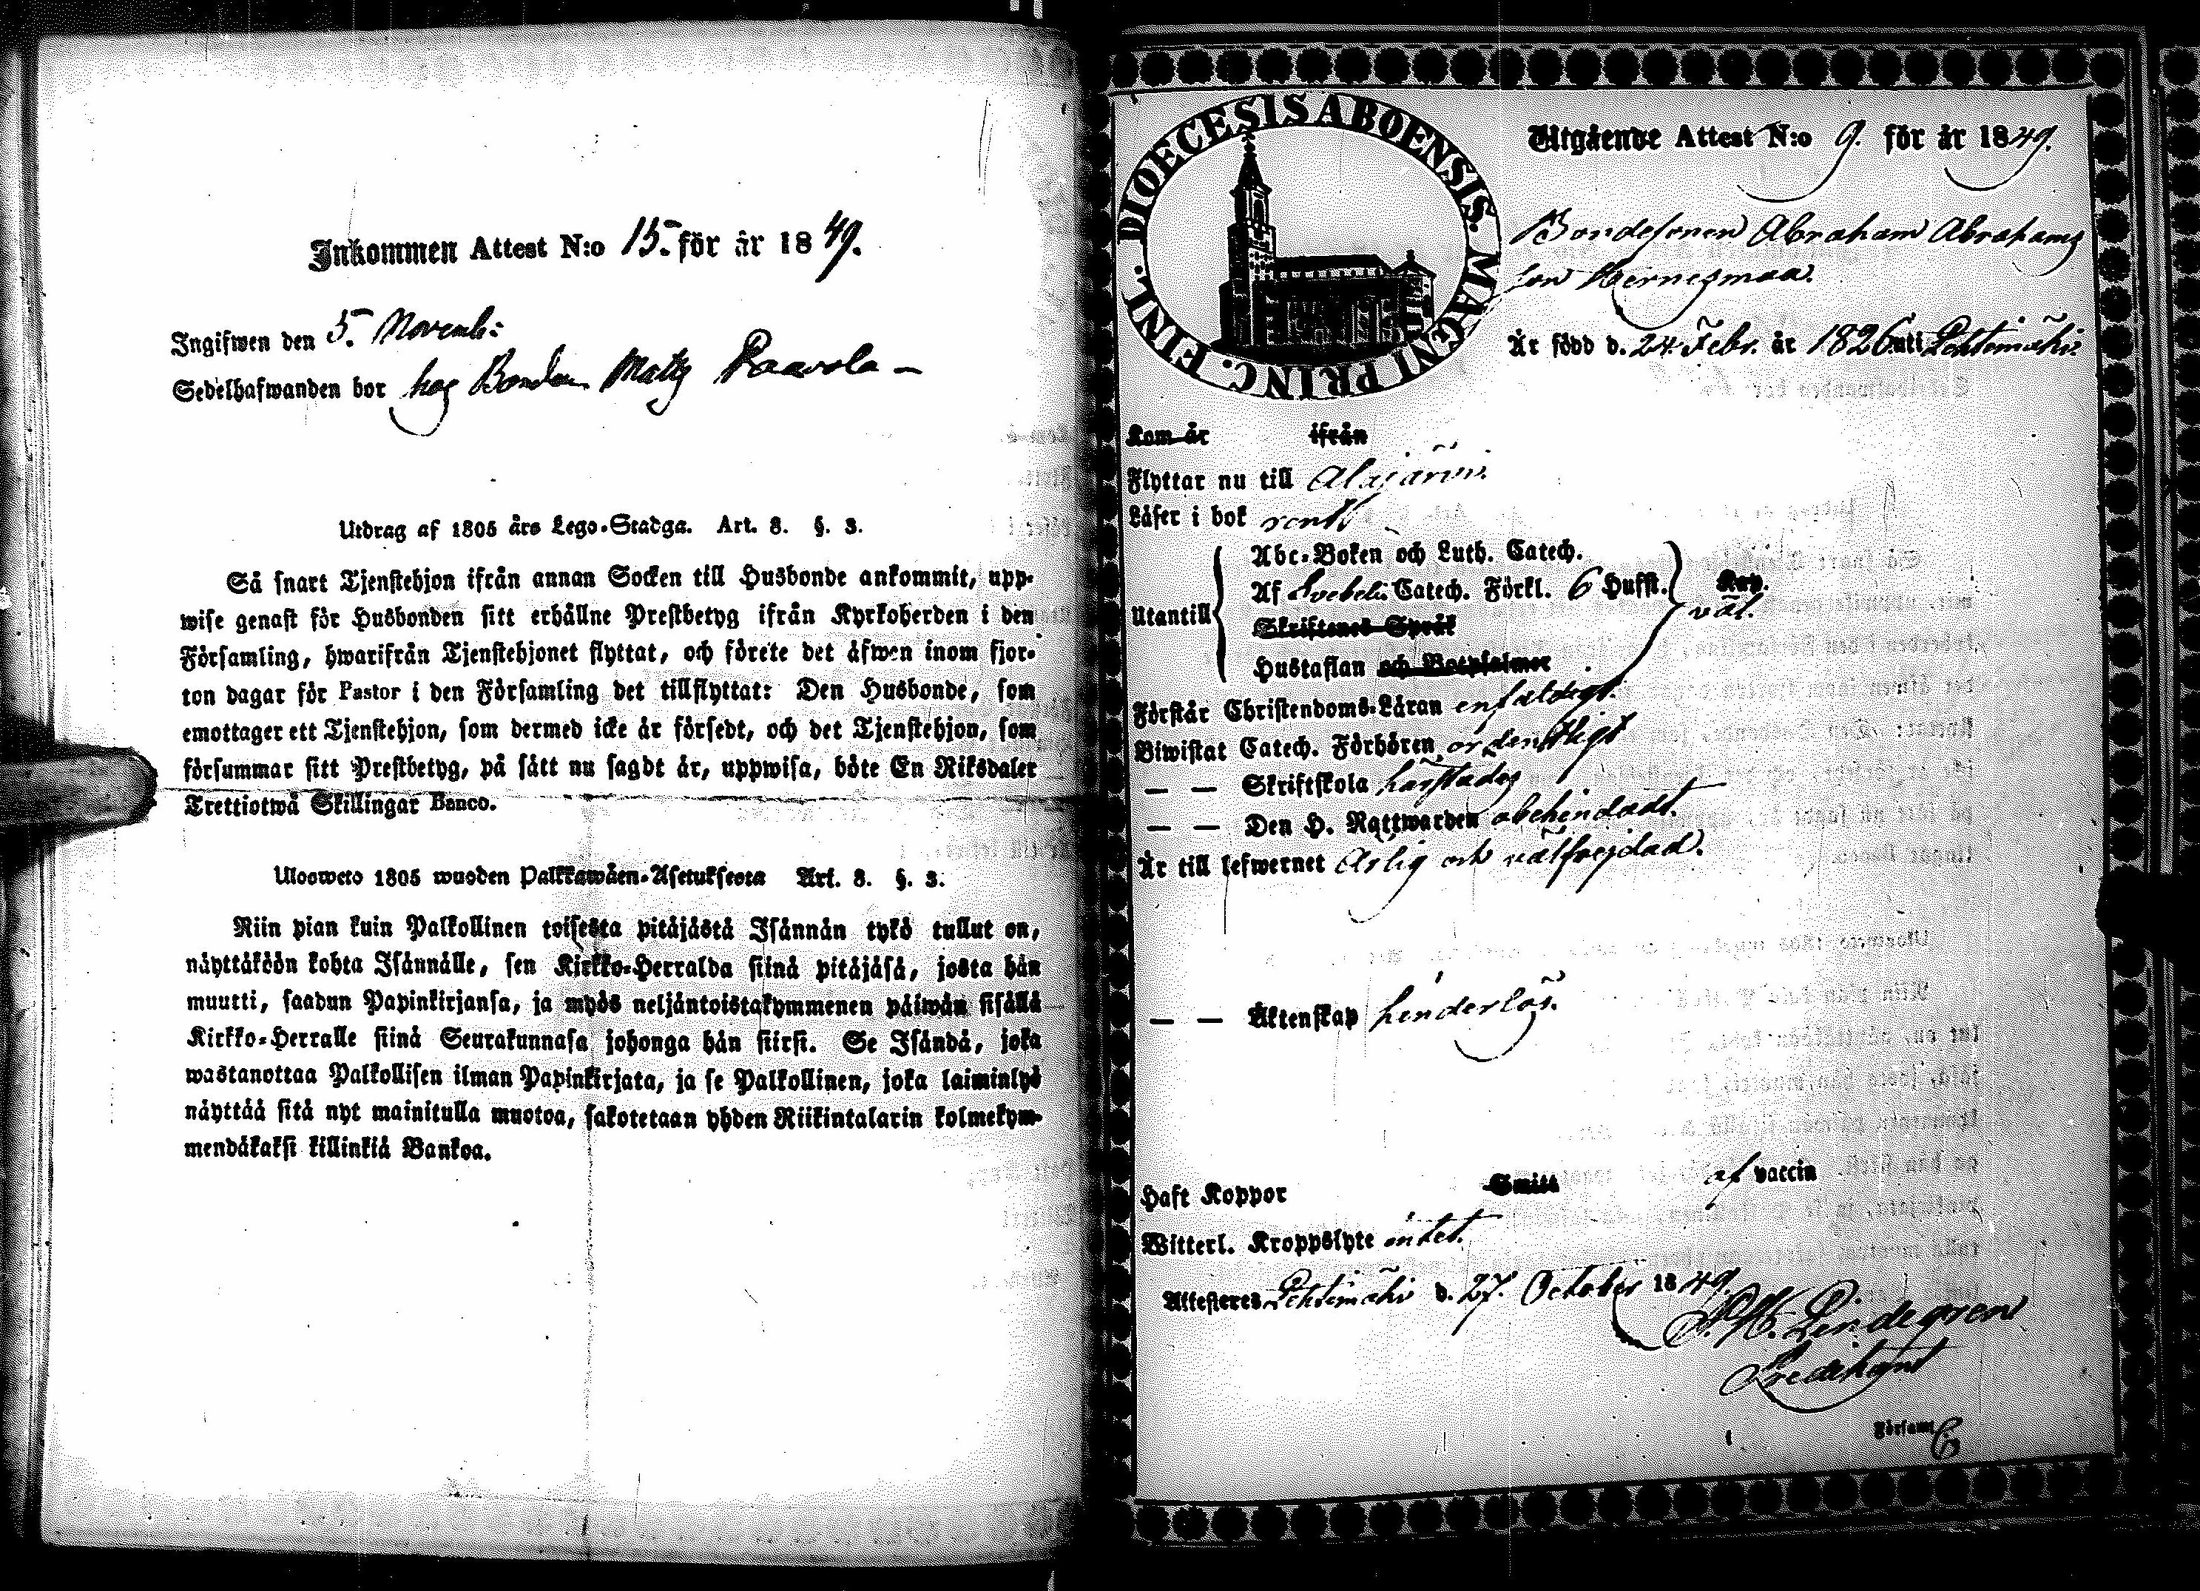 Inkommen Attest N:o 15. för år 1849.
Ingifwen den 5. Novemb:
Sedelhafwanden bor hos Bonden Matts Paavola –
Utdrag af 1805 års Lego-Stadga. Art. 8. §. 3.
Så snart Tjenstehjon ifrån annan Socken till Husbonde ankommit, upp-
wise genast för Husbonden sitt erhållne Prestbetyg ifrån Kyrkoherden i den
Församling, hwarifrån Tjenstehjonet flyttat, och förete det äfwen inom fjor-
ton dagar för Pastor i den Församling det tillflyttat: Den Husbonde, som
emottager ett Tjenstehjon, som dermed icke är försedt, och det Tjenstehjon, som
försummar sitt Prestbetyg, på sätt nu sagdt är, uppwisa, böte En Riksdaler
Trettiotwå Skillingar Banco.
Ulosweto 1805 wuoden Palkkawäen-Asetuksesta Art. 8. §. 3.
Niin pian kuin Palkollinen toisesta pitäjästä Isännän tykö tullut on,
näyttäköön kohta Isännälle, sen Kirkko-Herralda siinä pitäjäsä, josta hän
muutti, saadun Papinkirjansa, ja myös neljäntoistakymmenen päiwän sisällä
Kirkko-Herralle siinä Seurakunnasa johonga hän siirsi. Se Isändä, joka
wastanottaa Palkollisen ilman Papinkirjata, ja se Palkollinen, joka laiminlyö
näyttää sitä nyt mainitulla muotoa, sakotetaan yhden Riikintalarin kolmekym-
mendäkaksi killinkiä Bankoa.
DIOECESIS ABOENSIS. MAGNI PRINC. FINL.
Utgående Attest N:o 9. för år 1849.
Bondesonen Abraham Abrahams
son Hernesmaa.
Är född d. 24. Febr. år 1826 uti Lehtimäki.
Kom år ifrån
Flyttar nu till Alajärvi.
Läser i bok rent
Utantill
Abc-Boken och Luth. Catech.
Af Svebelii Catech. Förkl. 6 Hufst.
Skriftenes Språk
Hustaflan och Botpsalmer
väl.
Förstår Christendoms-Läran enfaldigt.
Biwistat Catech. Förhören ordentligt
— — Skriftskola härstädes
— — Den H. Nattwarden obehindradt.
Är till lefwernet ärlig och välfrejdad.
— — Äktenskap hinderlös.
Haft Koppor Smitt af vaccin
Witterl. Kroppslyte intet.
Attesteres Lehtimäki d. 27. October 1849.
Lindegren
Predikant
Församl